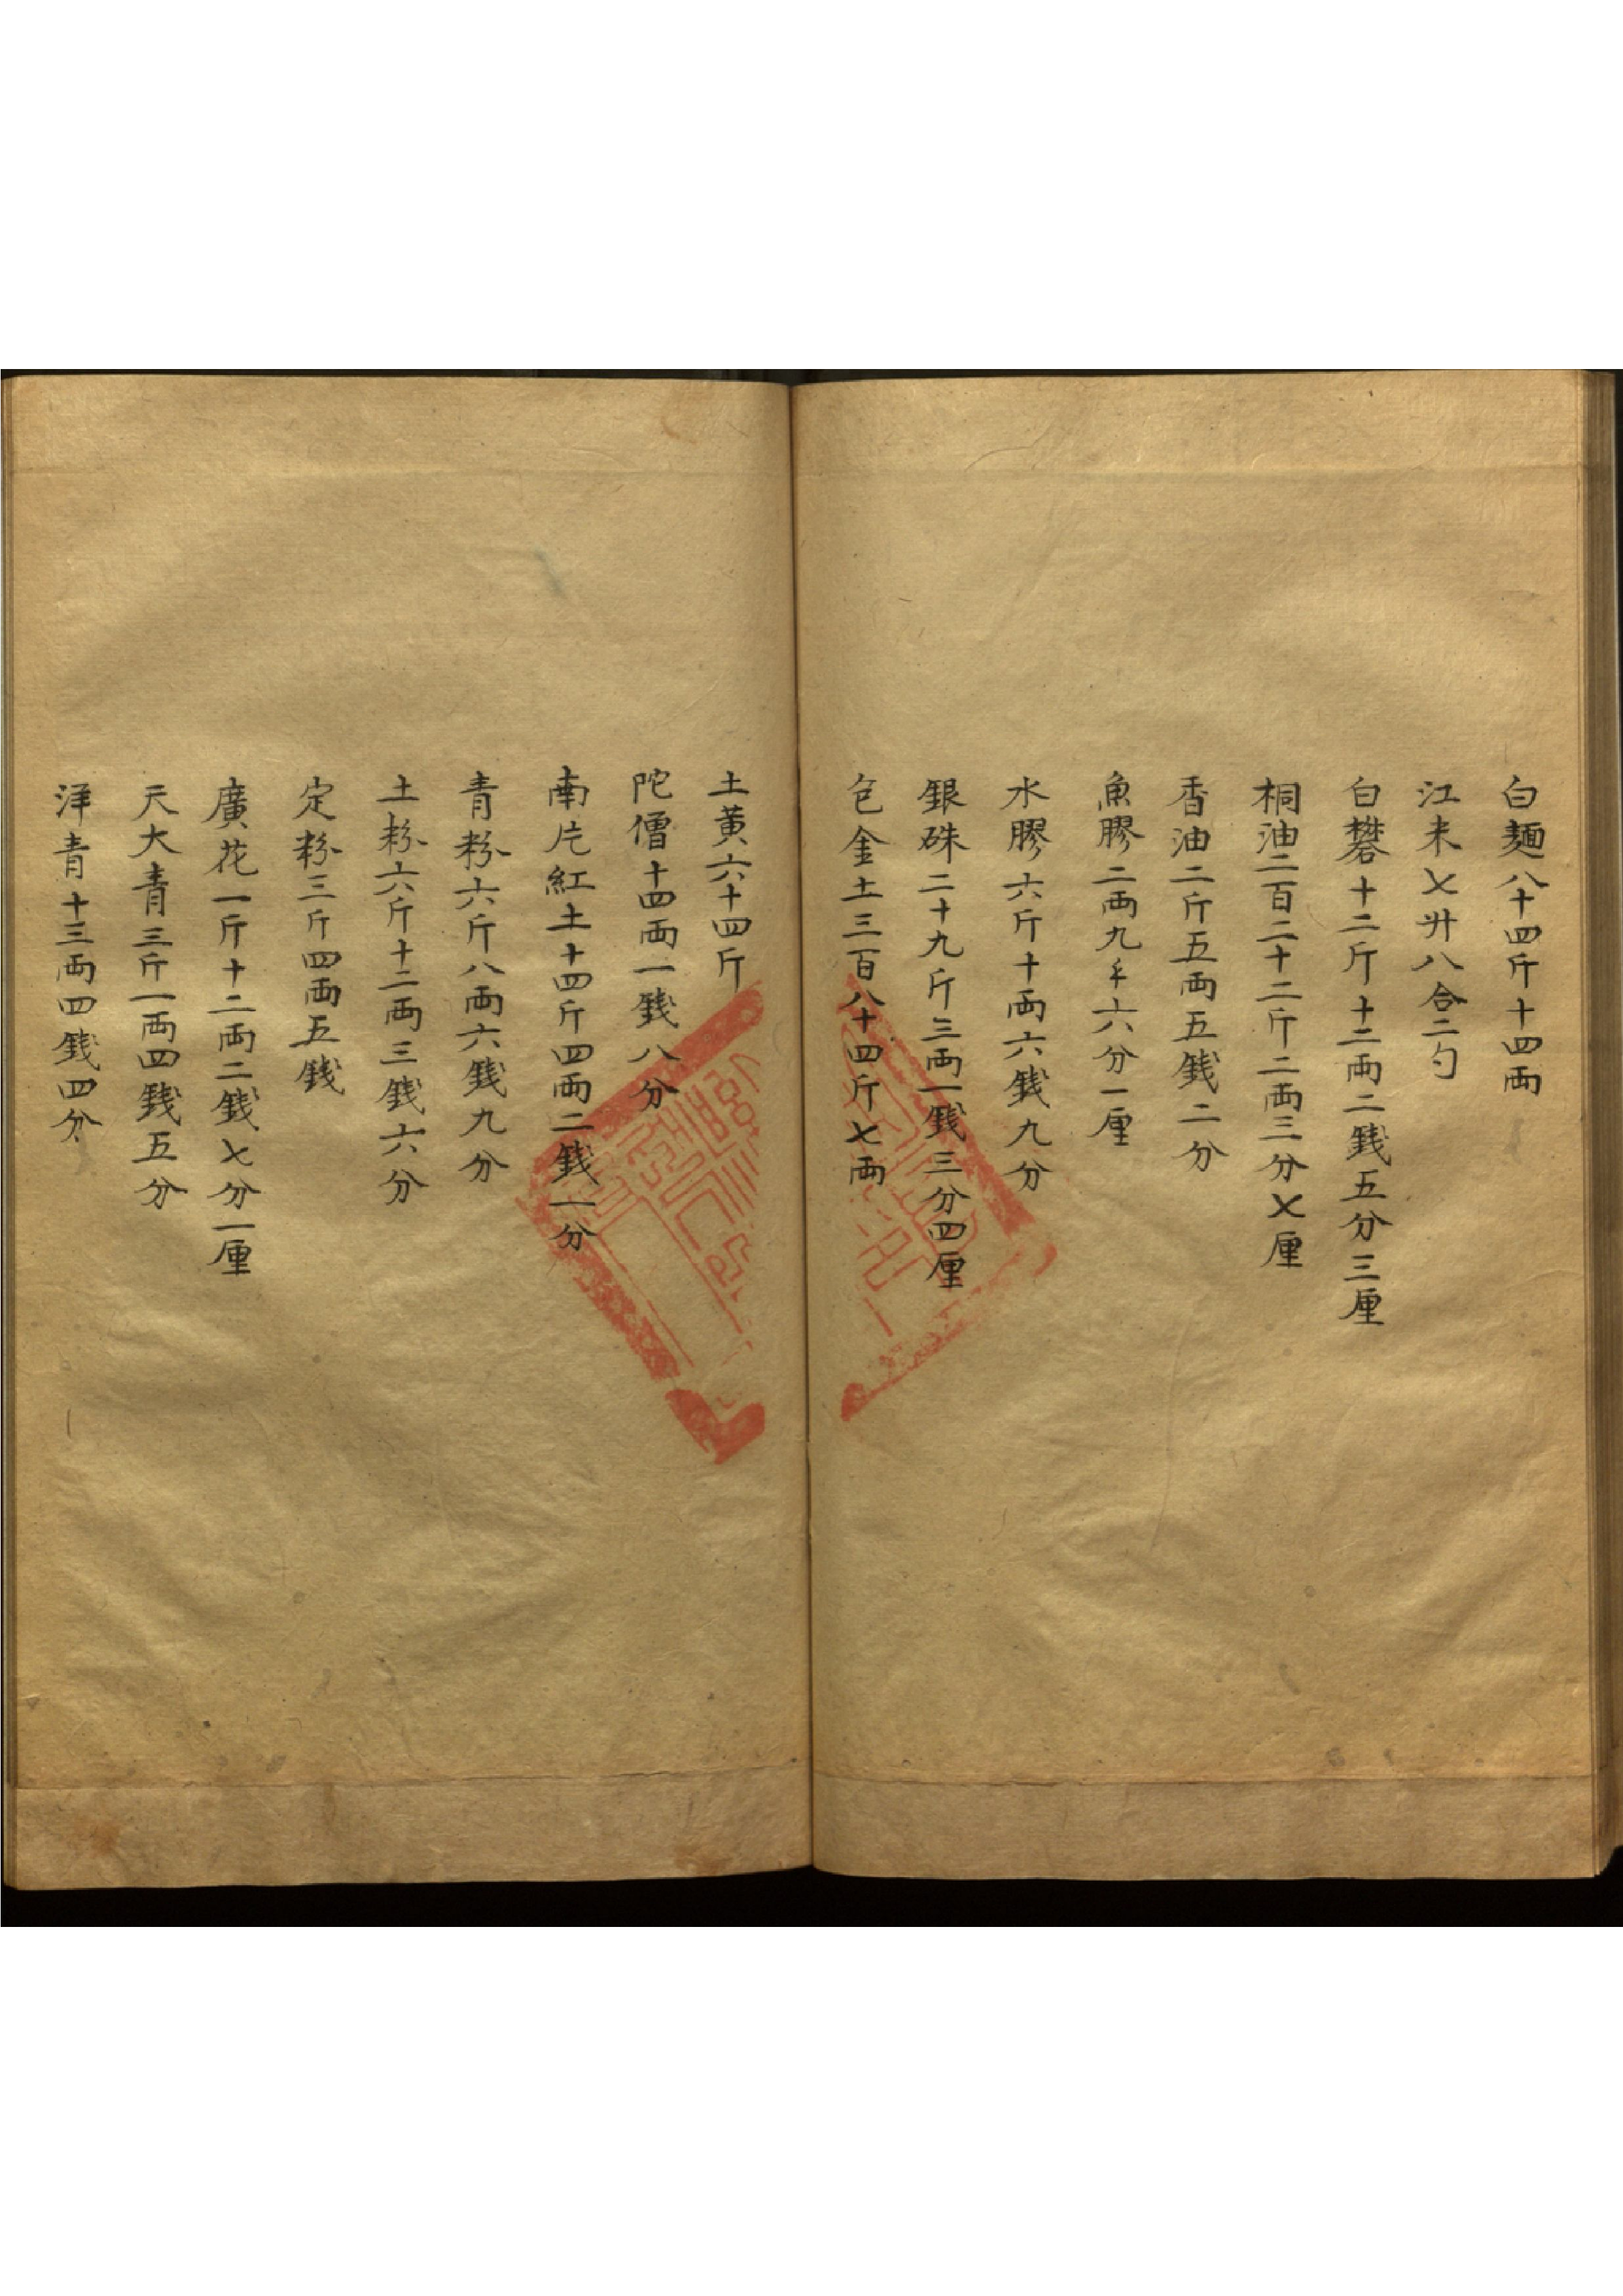 白麵八十四斤十四兩
江米七升八合二勺
白礬十二斤十二兩二錢五分三厘
桐油二百二十二斤二兩三分七厘
香油二斤五兩五錢二分
魚膠二兩九錢六分一厘
水膠六斤十兩六錢九分
銀硃二十九斤三兩一錢三分四厘
包金土三百八十四斤七兩
土黃六十四斤
陀僧十四兩一錢八分
南片紅土十四斤四兩二錢一分
青粉六斤八兩六錢九分
土粉六斤十二兩三錢六分
定粉三斤四兩五錢
廣花一斤十二兩二錢七分一厘
天大青三斤一兩四錢五分
洋青十三兩四錢四分